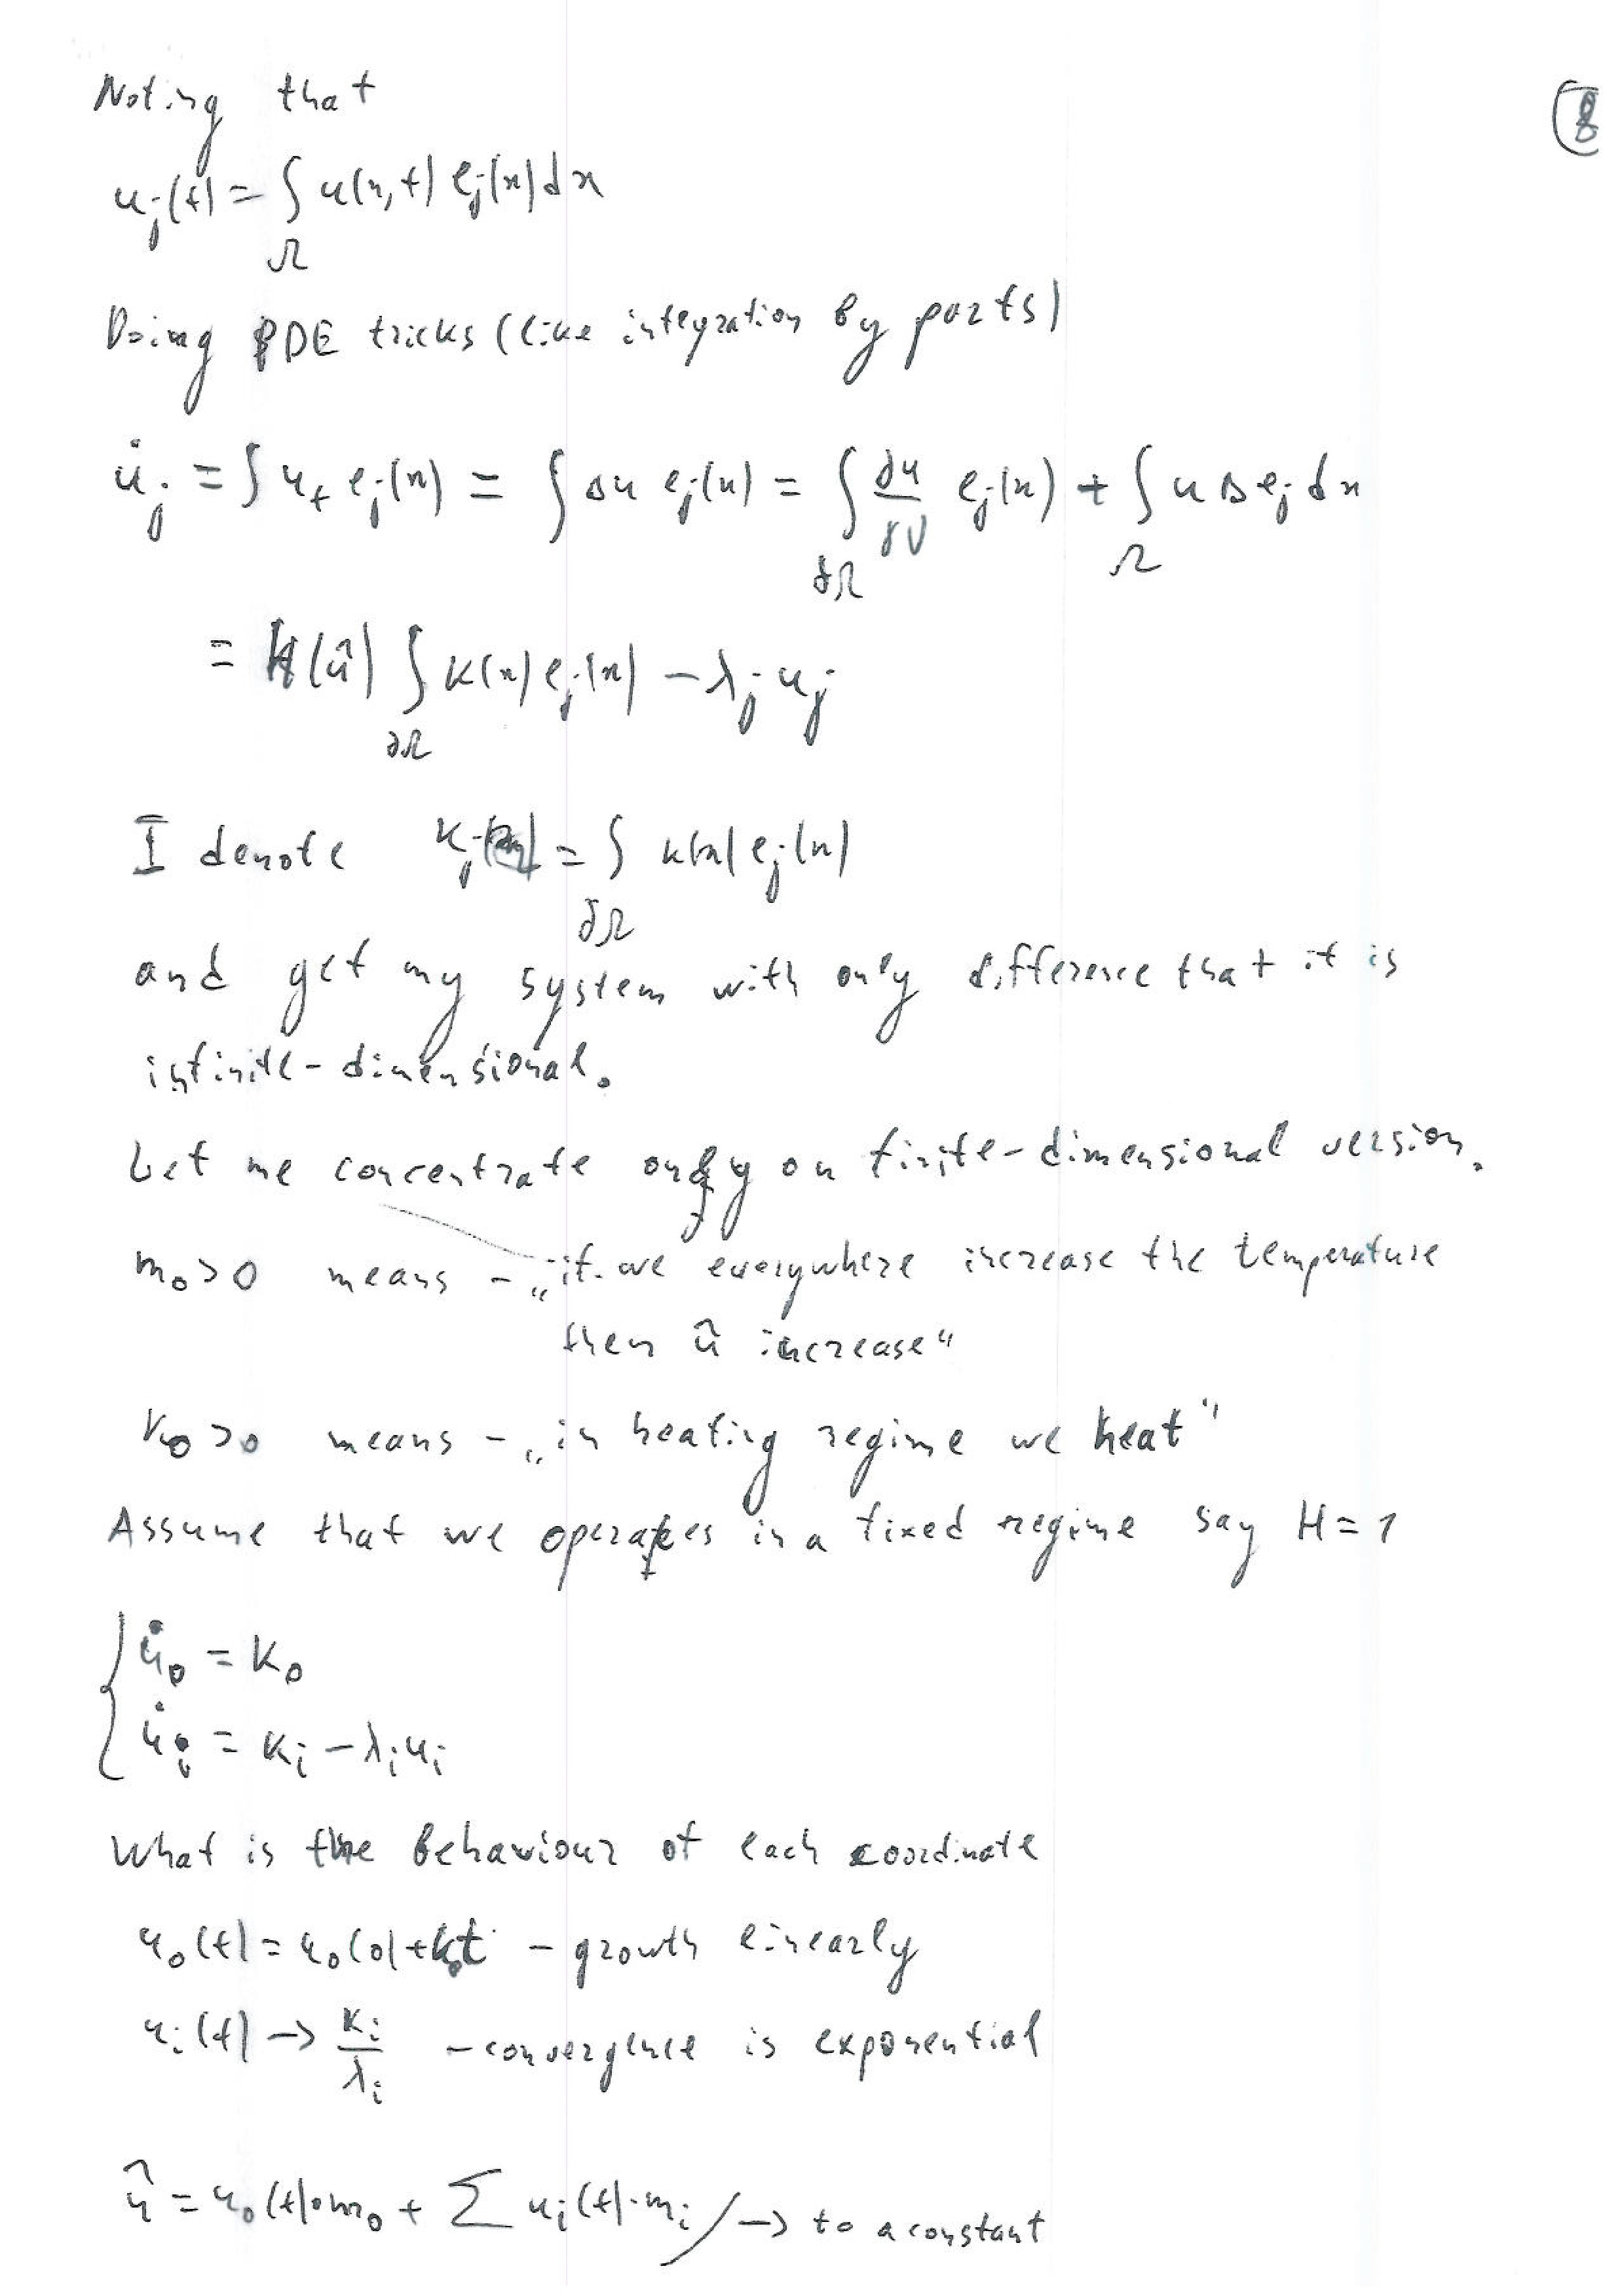 Noting that
(8
u_j(t) = ∫_Ω u(x,t) e_j(x) dx
Doing PDE tricks (like integration by parts)
u̇_j = ∫ u_t e_j(x) = ∫ Δu e_j(x) = ∫_∂Ω ∂u/∂ν e_j(x) + ∫_Ω u Δe_j dx
= H(û) ∫_∂Ω K(x) e_j(x) − λ_j u_j
I denote K_j = ∫_∂Ω K(x) e_j(x)
and get my system with only difference that it is
infinite-dimensional.
Let me concentrate only on finite-dimensional version.
m₀>0 means - „if we everywhere increase the temperature
then û increase“
K₀>0 means - „in heating regime we heat"
Assume that we operates in a fixed regime say H=1
{ u̇₀ = K₀
u̇_i = K_i − λ_i u_i
What is the behaviour of each coordinate
u₀(t) = u₀(0) + K₀t - growth linearly
u_i(t) → K_i/λ_i - convergence is exponential
û = u₀(t)·m₀ + Σ u_i(t)·m_i / → to a constant